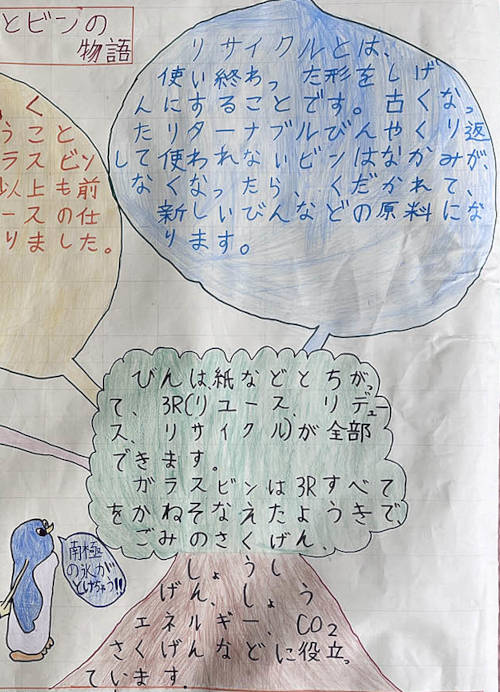 とビンの
物語
く
うこと
ラスビン
以上も前
ースの仕
りました。
リサイクルとは、
使い終わった形をしげ
んにすることです。古くなっ
たリターナブルびんやくり返
して使われないビンはなかみが、
なくなったら、くだかれて、
新しいびんなどの原料にな
ります。
びんは紙などとちがっ
て、3R(リユース、リデュー
ス、リサイクル)が全部
できます。
ガラスビンは3Rすべて
をかねそなえたようきで、
ごみのさくげん、
しょうし
げん、しょう
エネルギー、CO2
さくげんなどに役立っ
ています。
南極
の氷が
とけちゃう!!